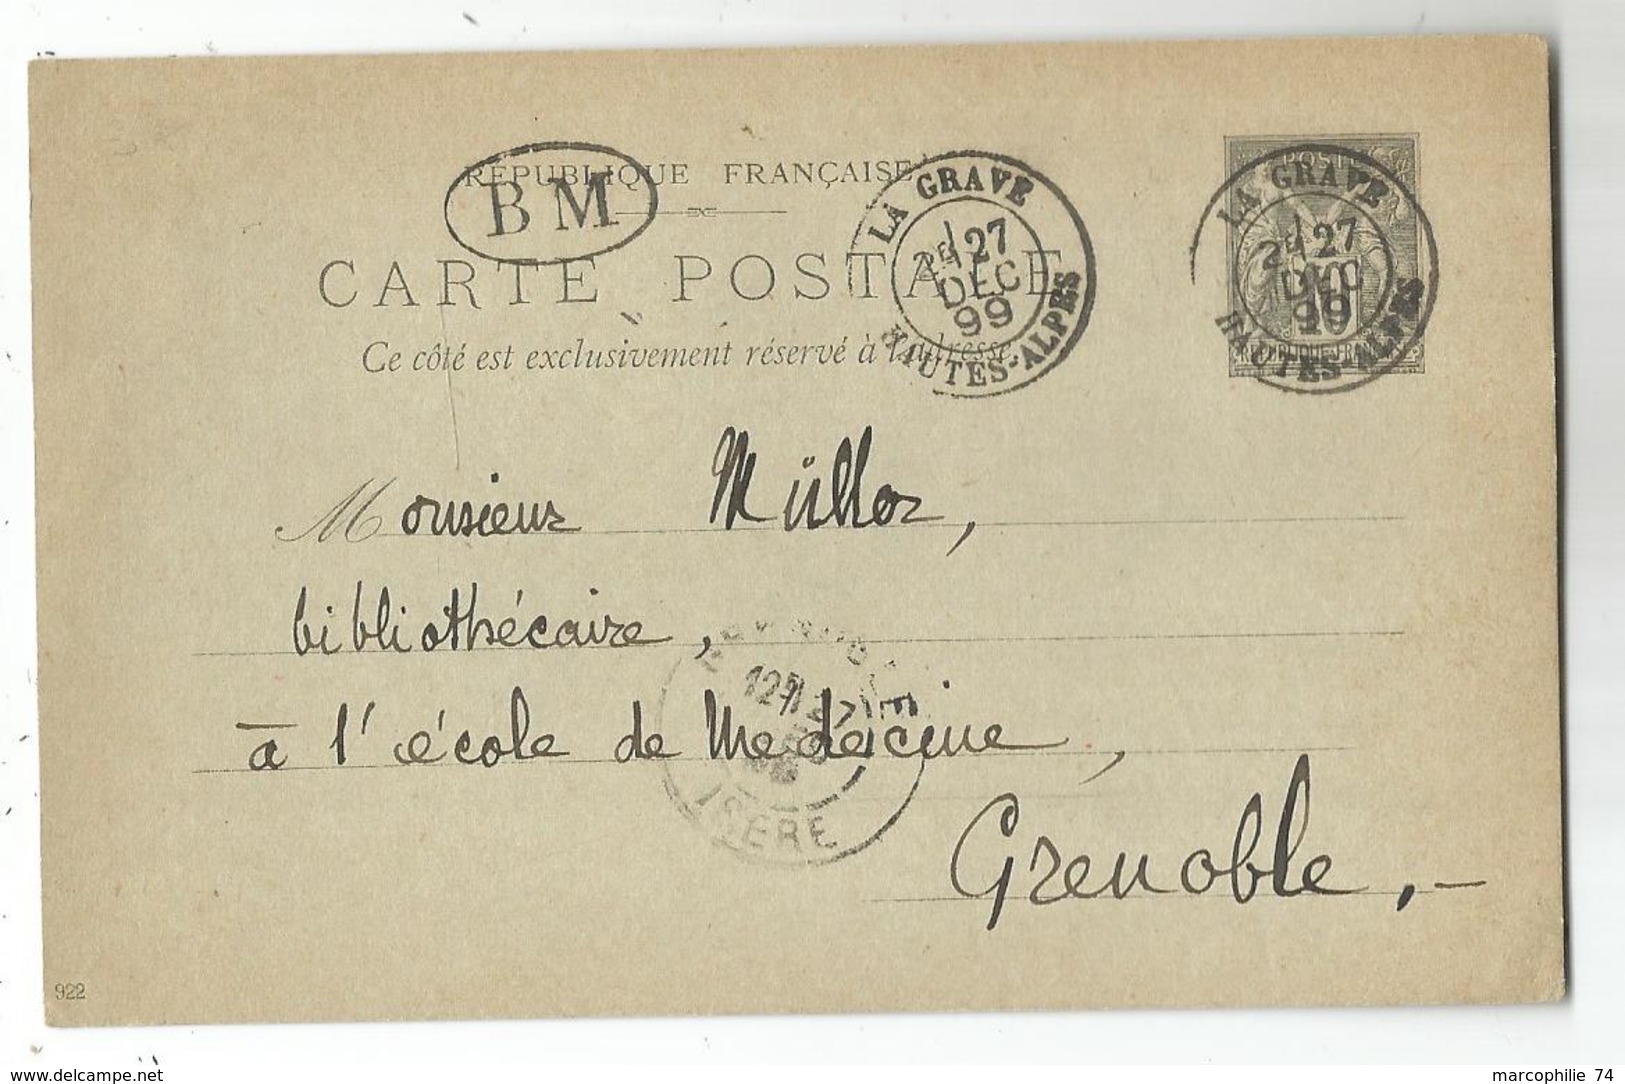 RÉPUBLIQUE FRANÇAISE
BM
CARTE POSTALE
Ce côté est exclusivement réservé à l'adresse.
LA GRAVE
2E 27
DEC
99
HAUTES-ALPES
POSTES
LA GRAVE
2E 27
DEC
99
HAUTES-ALPES
10
REPUBLIQUE FRANÇAISE
Monsieur Müller,
bibliothécaire,
à l'école de Medecine,
Grenoble.-
GRENOBLE
12 27
ISERE
922
www.delcampe.net
marcophilie 74